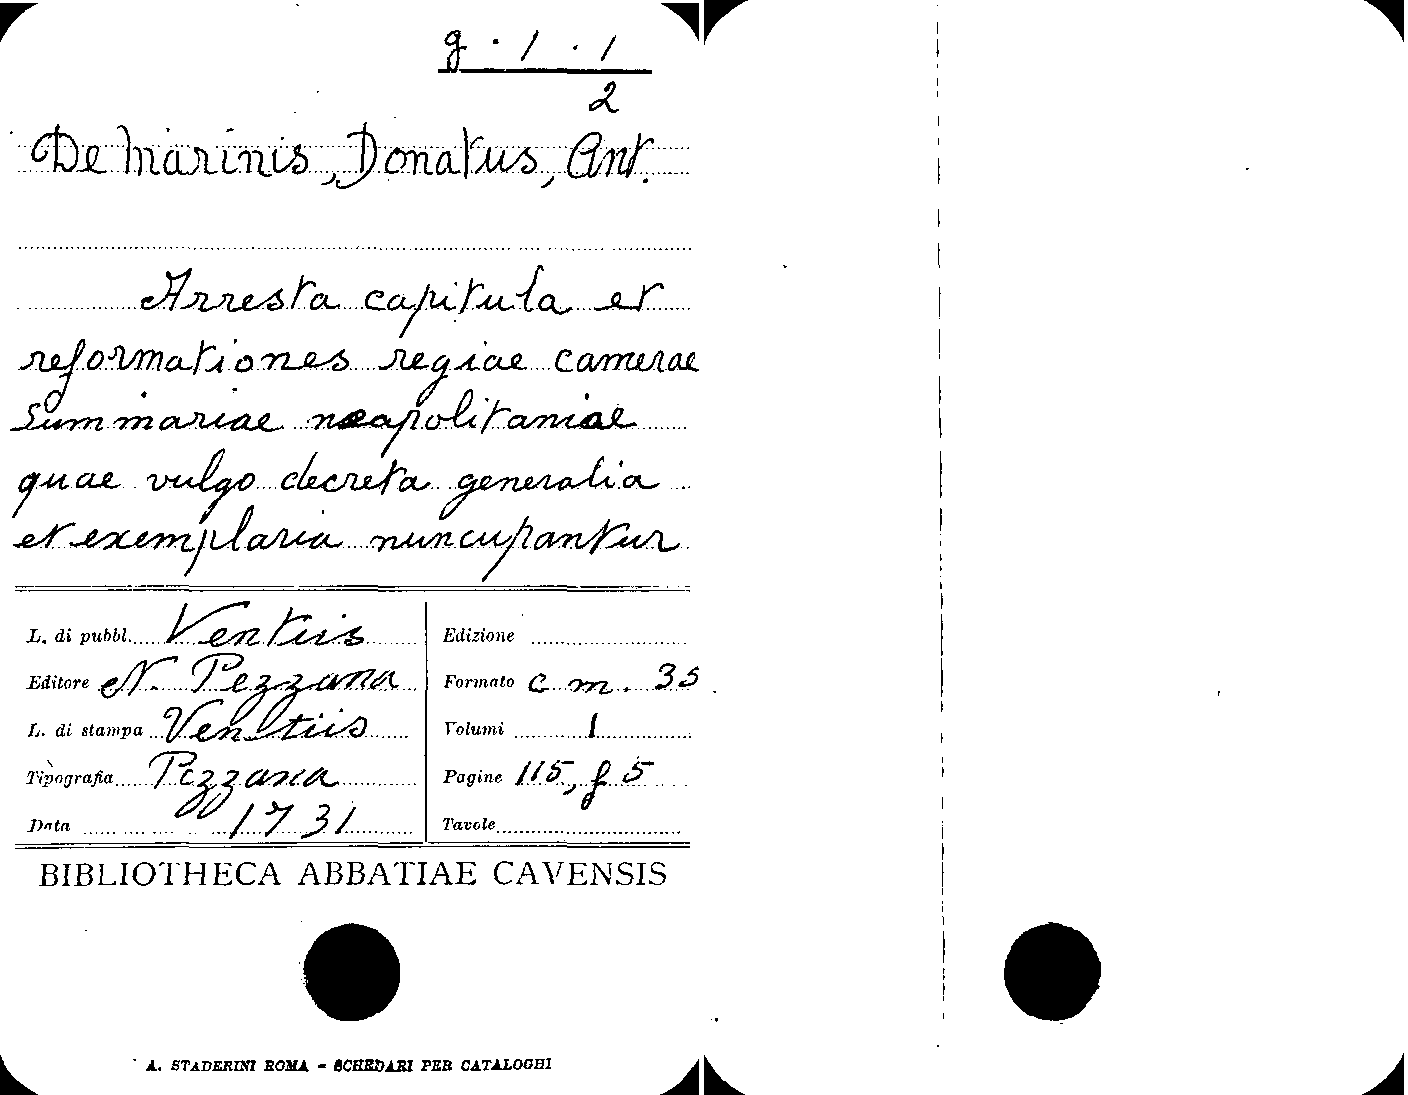 g . 1 . 1
2
De Marinis, Donatus, Ant.
Arresta capitula et
reformationes regiae camerae
Summariae neapolitaniae
quae vulgo decreta generalia
et exemplaria nuncupantur
L. di pubbl. Ventiis
Edizione
Editore N. Pezzana
Formato c m. 35
L. di stampa Venetiis
Volumi 1
Tipografia Pezzana
Pagine 115, f 5
Data 1731
Tavole
BIBLIOTHECA ABBATIAE CAVENSIS
A. STADERINI ROMA - SCHEDARI PER CATALOGHI